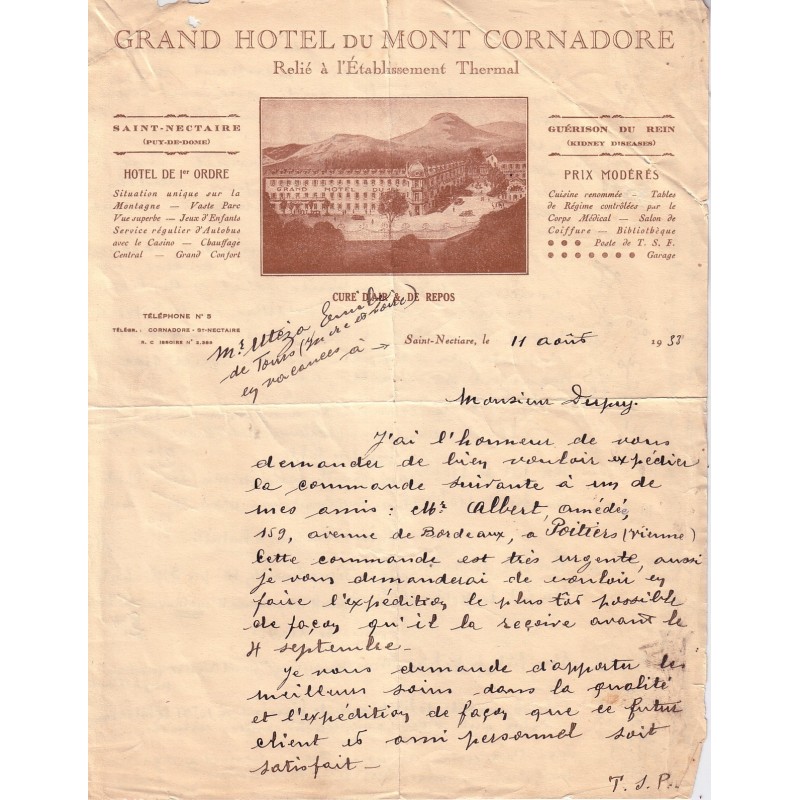 GRAND HOTEL DU MONT CORNADORE
Relié à l'Établissement Thermal
SAINT-NECTAIRE
(PUY-DE-DOME)
HOTEL DE 1er ORDRE
Situation unique sur la
Montagne — Vaste Parc
Vue superbe — Jeux d'Enfants
Service régulier d'Autobus
avec le Casino — Chauffage
Central — Grand Confort
GRAND HOTEL DU
GUÉRISON DU REIN
(KIDNEY DISEASES)
PRIX MODÉRÉS
Cuisine renommée — Tables
de Régime contrôlées par le
Corps Médical — Salon de
Coiffure — Bibliothèque
Poste de T. S. F.
Garage
CURE D'AIR & DE REPOS
TÉLÉPHONE N° 5
TÉLÉGR. : CORNADORE - ST-NECTAIRE
R. C ISSOIRE N° 2.
Mr Utéza
de Tours (Indre et Loire)
en vacances à →
Saint-Nectiare, le 11 août 1933
Monsieur Dupuy.
J'ai l'honneur de vous
demander de bien vouloir expédier
la commande suivante à un de
mes amis : Mr Albert, amédée,
159, avenue de Bordeaux, à Poitiers (Vienne)
Cette commande est très urgente, aussi
je vous demanderai de vouloir en
faire l'expédition le plus tôt possible
de façon qu'il la reçoive avant le
4 septembre -
Je vous demande d'apporter les
meilleurs soins dans la qualité
et l'expédition de façon que ce futur
client et ami personnel soit
satisfait -
T. S. P.